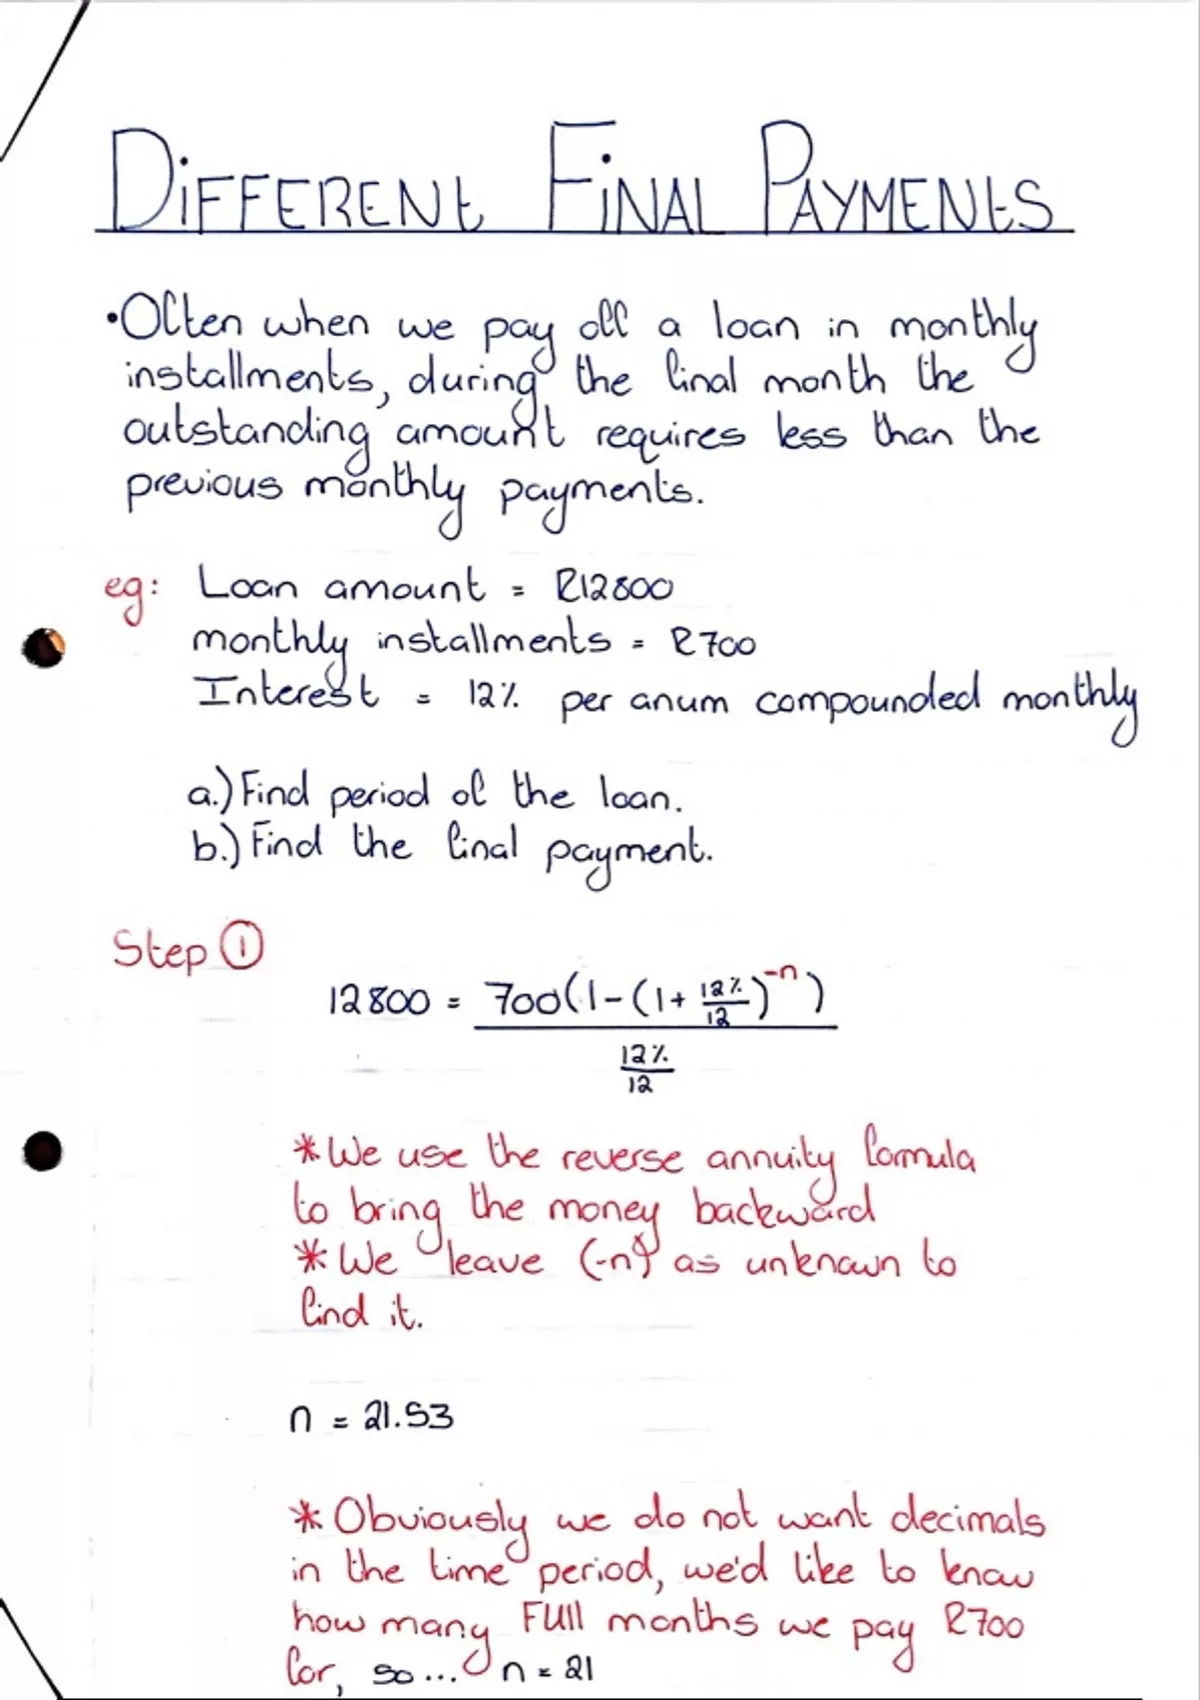 DiFFERENt FiNAL PAYMENtS
•Often when we pay off a loan in monthly
installments, during the final month the
outstanding amount requires less than the
previous monthly payments.
eg: Loan amount = R12800
monthly installments = R700
Interest = 12% per anum compounded monthly
a.) Find period of the loan.
b.) Find the final payment.
Step ①
12800 = 700(1-(1+ 12%/12)^-n)
12%/12
* We use the reverse annuity formula
to bring the money backward
* We leave (-n) as unknown to
find it.
n = 21.53
* Obviously we do not want decimals
in the time period, we'd like to know
how many FUll months we pay R700
for, so... n = 21